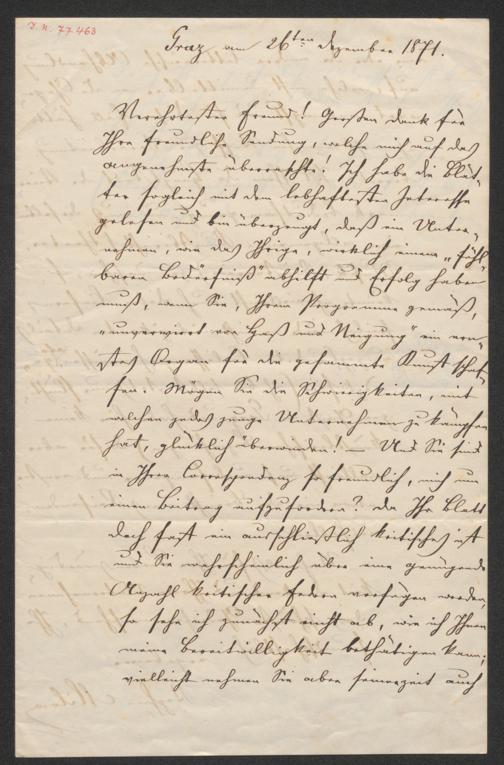 J. N. 77.463
Graz am 26ten Dezember 1871.
Verehrtester Freund! Großen Dank für
Ihre freundliche Sendung, welche mich auf das
angenehmste überraschte! Ich habe die Blät-
ter sogleich mit dem lebhaftesten Interesse
gelesen und bin überzeugt, daß ein Unter-
nehmen, wie das Ihrige, wirklich einem „fühl-
baren Bedürfniß“ abhilft und Erfolg haben
muß, wenn Sie, Ihrem Programme gemäß,
„unverwirrt von Haß und Neigung“ ein ern-
stes Organ für die gesammte Kunst schaf-
fen. Mögen Sie die Schwierigkeiten, mit
welchen jedes junge Unternehmen zu kämpfen
hat, glücklich überwinden! — Und Sie sind
in Ihrer Correspondenz so freundlich, mich um
einen Beitrag aufzufordern? Da Ihr Blatt
doch fast ein ausschließlich kritisches ist
und Sie wahrscheinlich über eine genügende
Anzahl kritischer Federn verfügen werden,
so sehe ich zunächst nicht ab, wie ich Ihnen
meine Bereitwilligkeit bethätigen kann;
vielleicht nehmen Sie aber seinerzeit auch